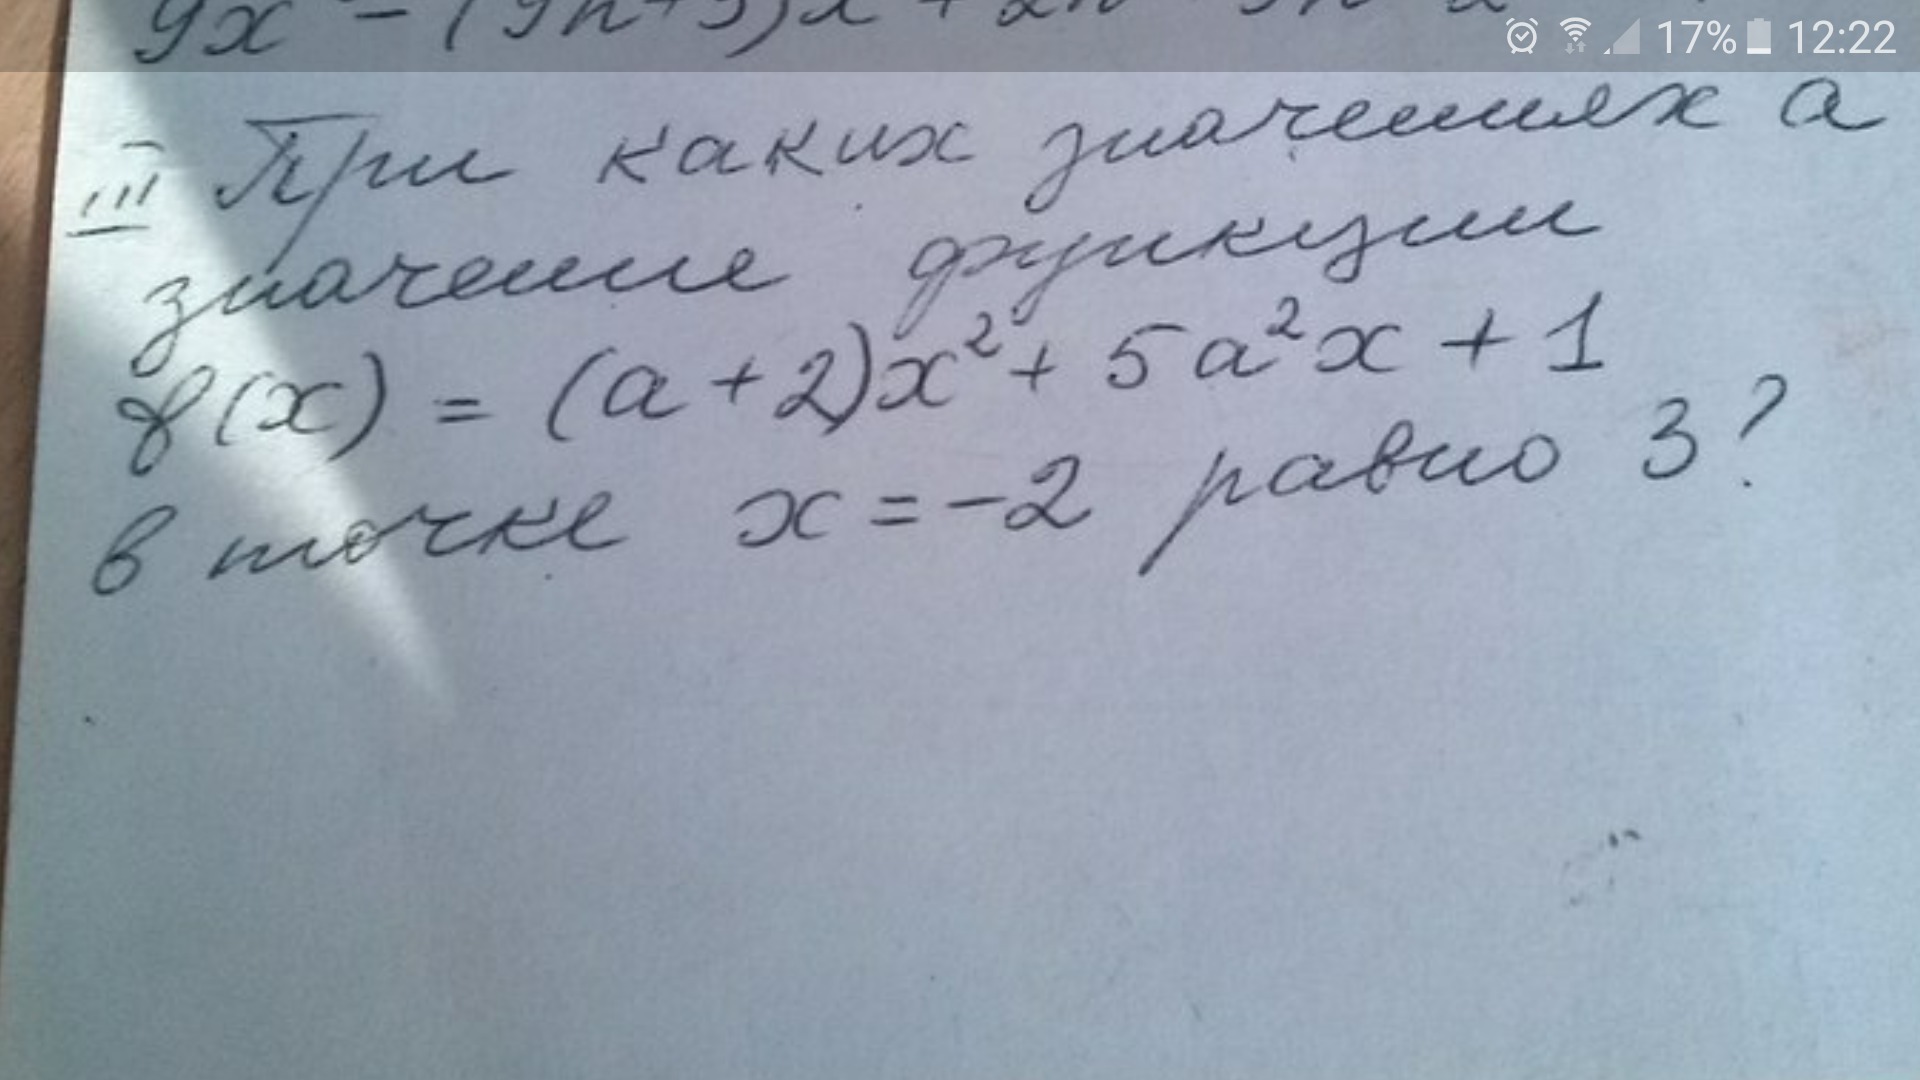 17% 12:22
III При каких значениях а
значение функции
f(x) = (a+2)x² + 5a²x + 1
в точке x = -2 равно 3?